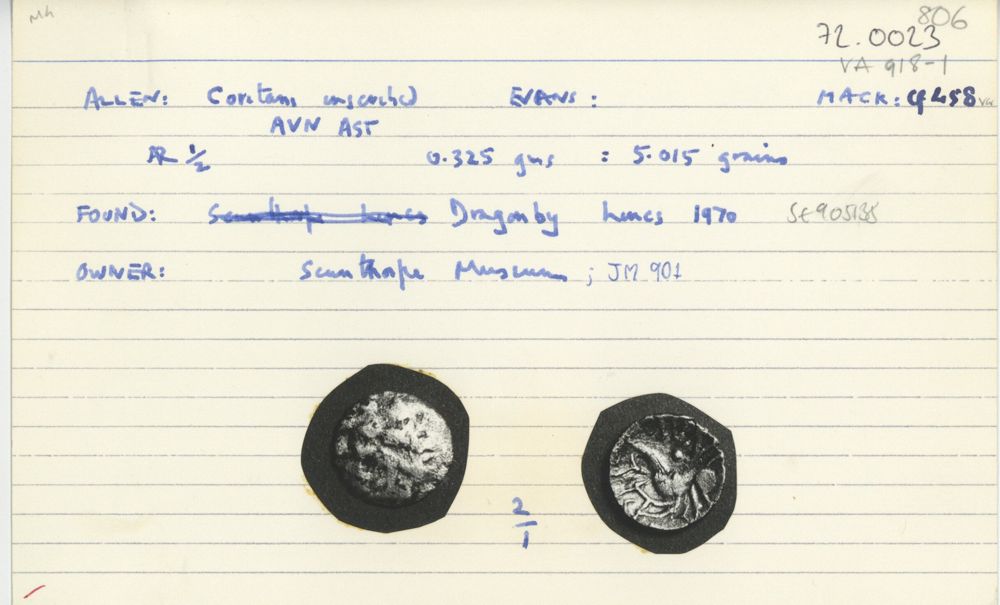 Mh
806
72.0023
VA 918-1
ALLEN: Coritani inscribed EVANS: MACK: cf 458 VA
AVN AST
AR 1/2 0.325 gms : 5.015 grains
FOUND: Scunthorpe Lincs Dragonby Lincs 1970 SE905135
OWNER: Scunthorpe Museum ; JM 901
2/1